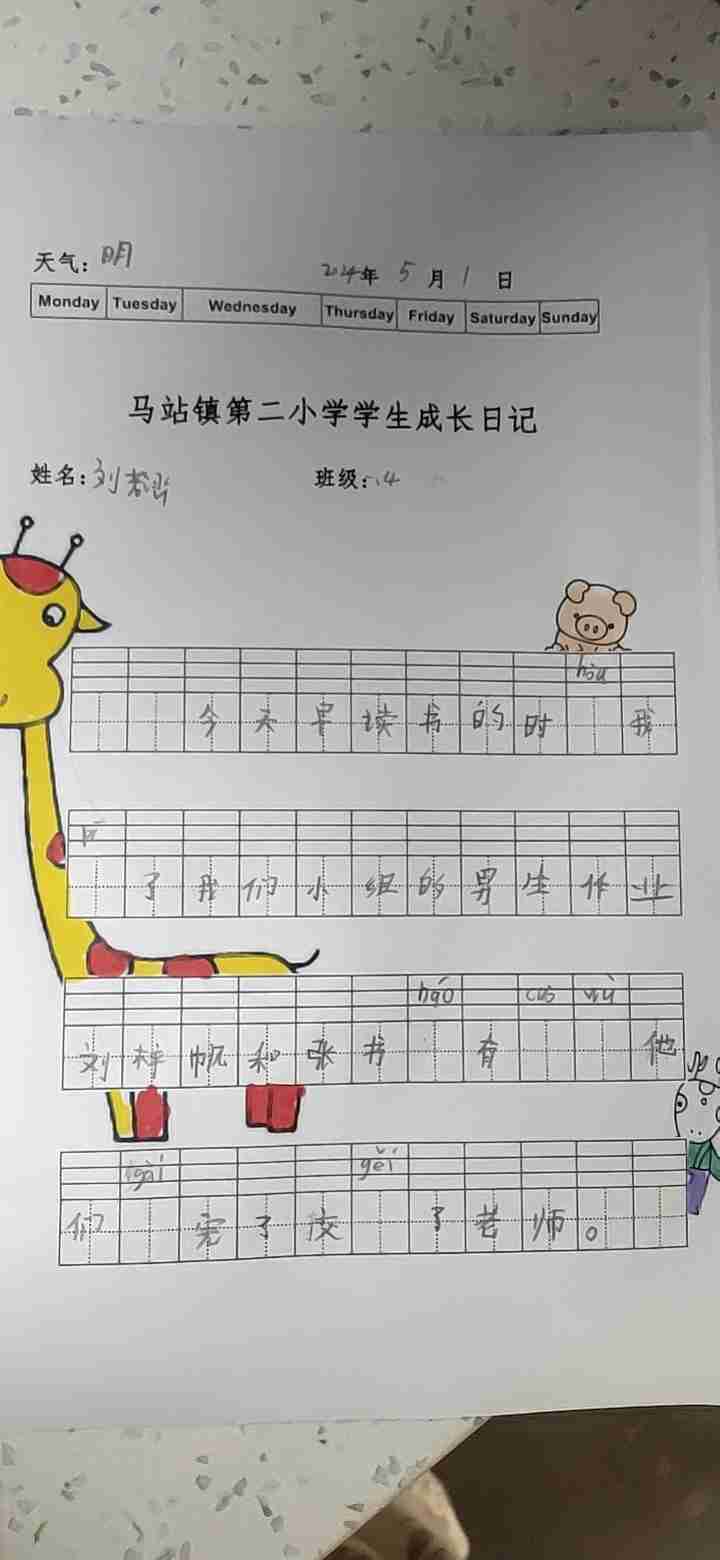 天气：明 2024年 5 月 1 日
Monday Tuesday Wednesday Thursday Friday Saturday Sunday
马站镇第二小学学生成长日记
姓名：刘 班级：.4
hòu
今天早读书的时 我
了我们小组的男生作业
hǎo cuò wù
刘梓帆和张书 有 他
gǎi gěi
们 完了交 了老师。